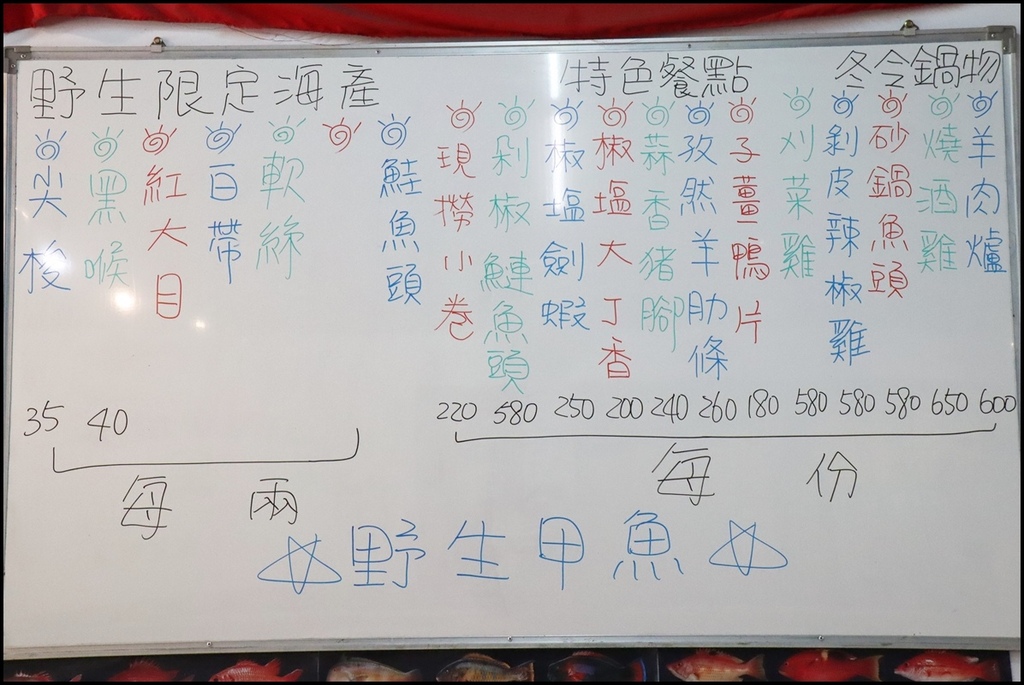 野生限定海產
特色餐點
冬令鍋物
尖梭
黑喉
紅大目
白帶
軟絲
鮭魚頭
現撈小卷
剁椒鰱魚頭
椒塩劍蝦
椒塩大丁香
蒜香豬腳
孜然羊肋條
子薑鴨片
刈菜雞
剝皮辣椒雞
砂鍋魚頭
燒酒雞
羊肉爐
35 40
220 580 250 200 240 260 180 580 580 580 650 600
每兩
每份
野生甲魚